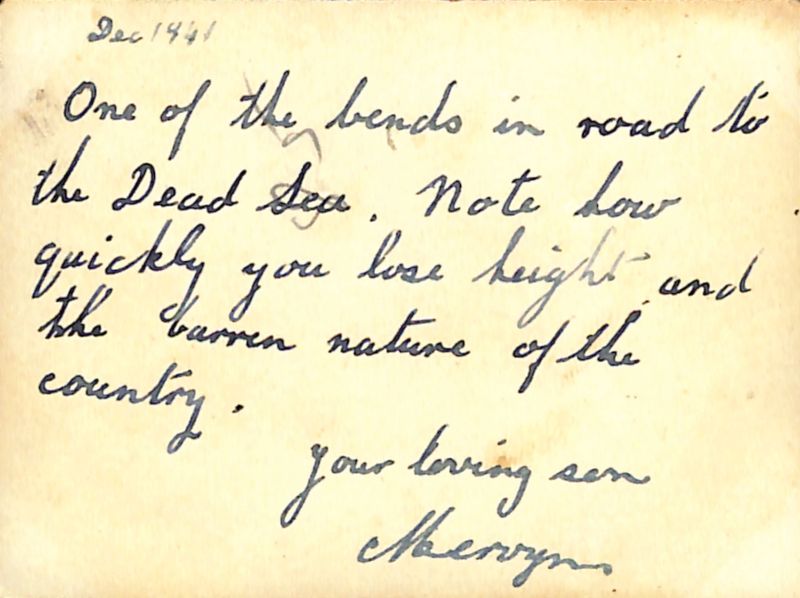 Dec 1941
One of the bends in road to
the Dead Sea. Note how
quickly you lose height and
the barren nature of the
country.
your loving son
Mervyn